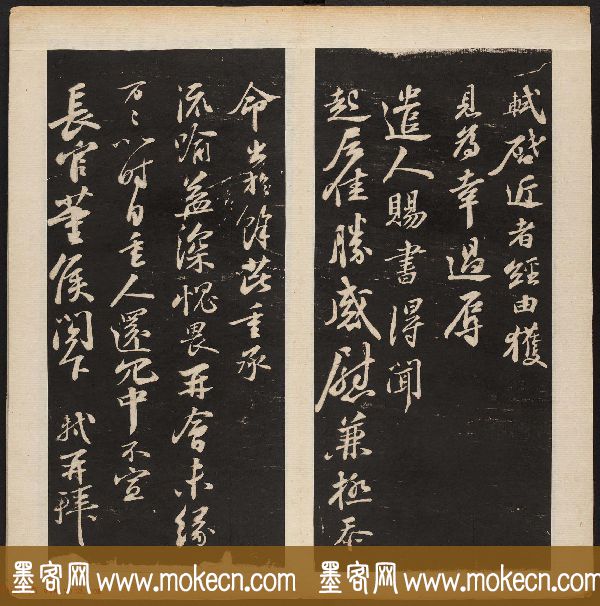 軾啟近者經由獲
見為幸過辱
遣人賜書得聞
起居佳勝感慰兼極忝
命出於餘芘重承
流喻益深愧畏再會未緣
万〻以时自重人還冗中不宣
長官董侯閣下 軾再拜
墨客网 www.mokecn.com 墨客网 www.mokecn.com